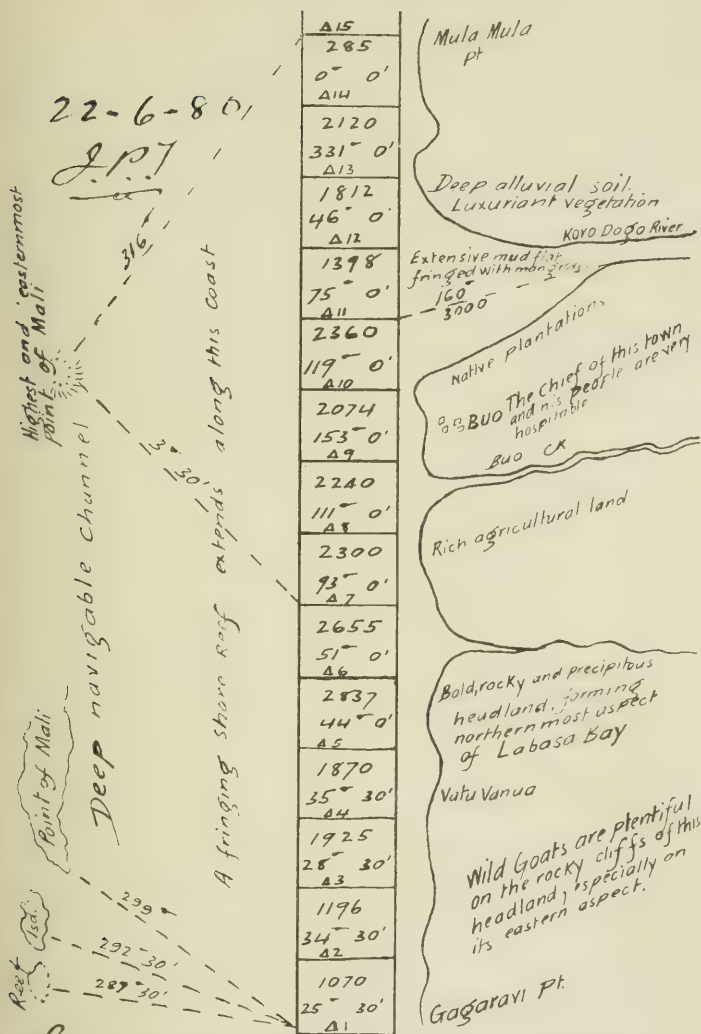 22-6-80
J.P.T
Highest and easternmost
Point of Mali
316°
Deep navigable channel
A fringing shore Reef extends along this coast
Point of Mali
299°
Isd.
292° 30'
Reef
287° 30'
Δ15
285
0° 0'
Δ14
2120
331° 0'
Δ13
1812
46° 0'
Δ12
1398
75° 0'
Δ11
2360
119° 0'
Δ10
2074
153° 0'
Δ9
2240
111° 0'
Δ8
2300
93° 0'
Δ7
2655
51° 0'
Δ6
2837
44° 0'
Δ5
1870
35° 30'
Δ4
1925
28° 30'
Δ3
1196
34° 30'
Δ2
1070
25° 30'
Δ1
Mula Mula
pt
Deep alluvial soil.
Luxuriant vegetation
Koro Dogo River
Extensive mud flat
fringed with
160°
3000
Native plantations
BUO The Chief of this town
and his people are very
hospitable
Buo CK
Rich agricultural land
Bold, rocky and precipitous
headland, forming
northernmost aspect
of Labasa Bay
Vatu Vanua
Wild Goats are plentiful
on the rocky cliffs of this
headland, especially on
its eastern aspect.
Gagaravi Pt.